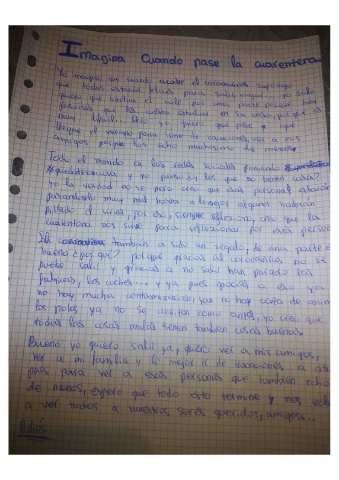 Imagina Cuando pase la cuarentena
Yo imagino que cuando acabe el coronavirus supongo
que todos estarán felices para salir, seguir... yo solo
quiero que vuelva el cole por una parte, porque hay
personas que los niños estudian en su casa, porque es
muy difícil. Sólo yo quiero que pase y que
llegue el verano para irme de vacaciones, ver a mis
amigos porque los echo muchísimo de menos.
Todo el mundo en las redes sociales poniendo
#quedateencasa y yo pienso ¿en los que no tienen casa?
yo la verdad no se pero creo que esas personas estarán
pasandolo muy mal hasta a lo mejor algunos habrán
pillado el virus, por eso, siempre reflexiono, creo que la
cuarentena nos sirve para reflexionar por esas personas
también a sido un regalo, de una parte es
bueno ¿por qué? porque gracias al coronavirus no se
puede salir y gracias a no salir han parado las
fabricas, los coches... y ya pues gracias a eso ya
no hay mucha contaminación, ya no hay
los polos ya no se derriten como antes, yo creo que
todas las cosas malas tienen tambien cosas buenas.
Bueno yo quiero salir ya, quiero ver a mis amigos,
ver a mi familia y lo mejor ir de vacaciones a otro
país para ver a esas personas que tambien echo
de menos, espero que todo esto termine y nos
a ver todos a nuestros seres queridos, amigos...
Adios.